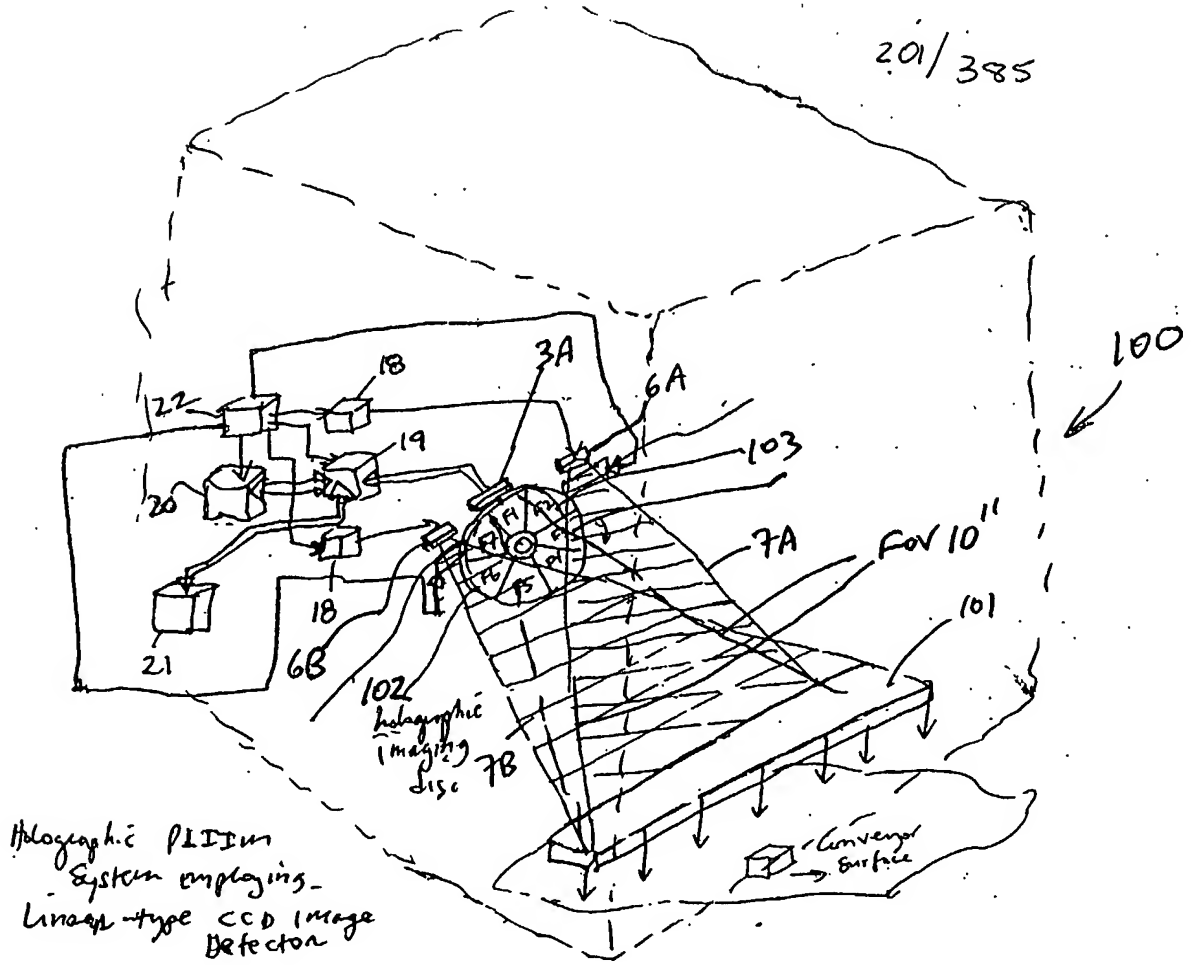 201/385
100
3A
18
6A
22
19
103
20
F1
F2
7A
FOV 10"
F6
F5
101
18
21
6B
102
holographic
imaging
disc
7B
Conveyor
surface
Holographic PLIIM
System employing
Linear-type CCD Image
Detector